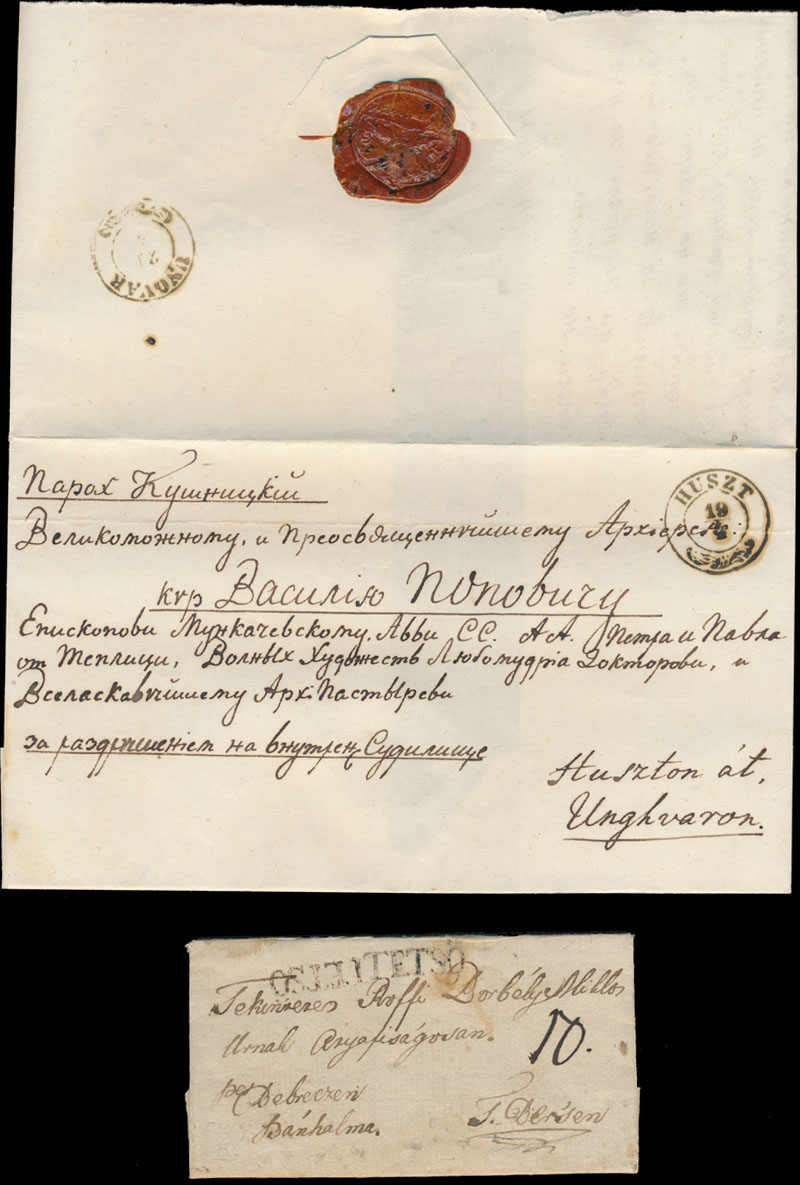 UNGVÁR
21
HUSZT
19
Парох Кушницкій
Великоможному, и Преосвященнѣйшему Архіерею:
кѵр Василію Поповичу
Епископови Мункачевскому, Абби СС. АА. Петра и Павла
от Теплици, Волных Художеств Любомудрія Докторови, и
Вселаскавѣйшему Арх: Пастыреви
за раздрѣшеніем на внутрен. Судилище
Huszton át,
Unghvaron.
Tekintetes Roffi Borbély Miklos
Urnak Atyafiságosan.
10.
per Debreczen
Bánhalma.
T. Dersen